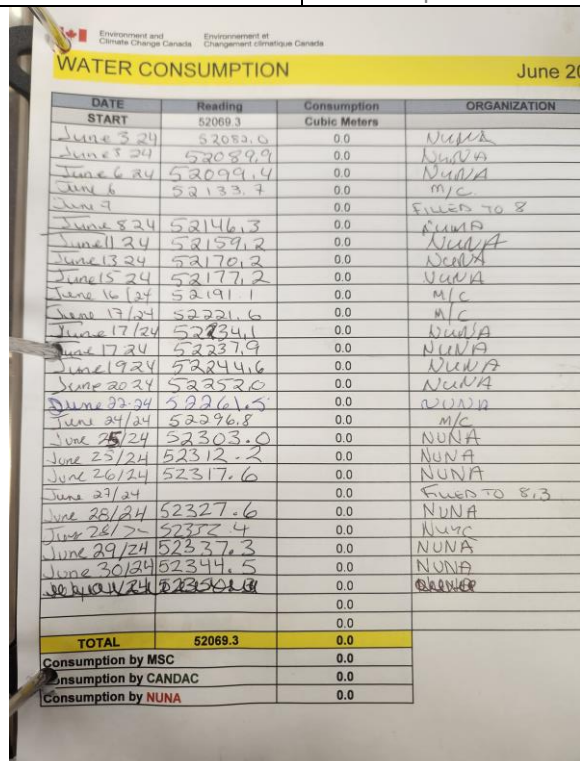 Environment and Environnement et
Climate Change Canada Changement climatique Canada
WATER CONSUMPTION June 20
DATE Reading Consumption ORGANIZATION
START 52069.3 Cubic Meters
June 3 24 52082.0 0.0 NUNA
June 5 24 52089.9 0.0 NUNA
June 6 24 52099.4 0.0 NUNA
June 6 52133.7 0.0 M/C
June 9 0.0 FILLED TO 8
June 8 24 52146.3 0.0 NUNA
June 11 24 52159.2 0.0 NUNA
June 13 24 52170.2 0.0 NUNA
June 15 24 52177.2 0.0 NUNA
June 16/24 52191.1 0.0 M/C
June 17/24 52221.6 0.0 M/C
June 17/24 52234.1 0.0 NUNA
June 17 24 52237.9 0.0 NUNA
June 19 24 52244.6 0.0 NUNA
June 20 24 52252.0 0.0 NUNA
June 22-24 52261.5 0.0 NUNA
June 24/24 52296.8 0.0 M/C
June 25/24 52303.0 0.0 NUNA
June 25/24 52312.2 0.0 NUNA
June 26/24 52317.6 0.0 NUNA
June 27/24 0.0 FILLED TO 8.3
June 28/24 52327.6 0.0 NUNA
June 28/ 52332.4 0.0
June 29/24 52337.3 0.0 NUNA
June 30/24 52344.5 0.0 NUNA
0.0
0.0
0.0
TOTAL 52069.3 0.0
Consumption by MSC 0.0
Consumption by CANDAC 0.0
Consumption by NUNA 0.0